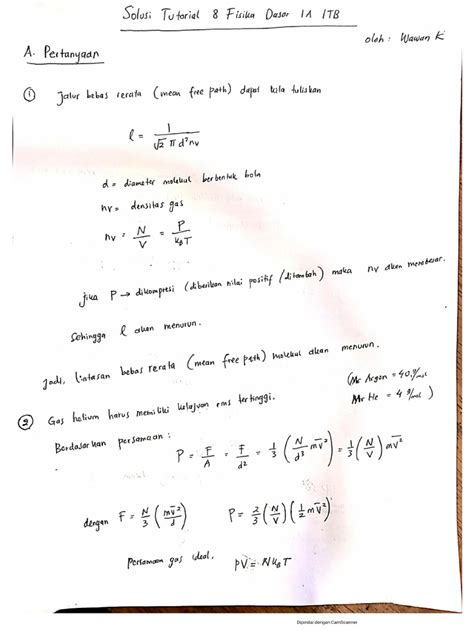 Solusi Tutorial 8 Fisika Dasar 1A ITB
oleh : Wawan K
A. Pertanyaan
① Jalur bebas rerata (mean free path) dapat kita tuliskan
l = 1 / √2 π d² nv
d = diameter molekul berbentuk bola
nv = densitas gas
nv = N/V = P/k_BT
jika P → dikompresi (diberikan nilai positif / ditambah) maka nv akan membesar.
Sehingga l akan menurun.
Jadi, lintasan bebas rerata (mean free path) molekul akan menurun.
② Gas helium harus memiliki kelajuan rms tertinggi. (Mr Argon = 40 g/mol
Mr He = 4 g/mol)
Berdasarkan persamaan :
P = F/A = F/d² = 1/3 (N/d³ m v̄²) = 1/3 (N/V) m v̄²
dengan F = N/3 (m v̄²/d) P = 2/3 (N/V) (1/2 m v̄²)
Persamaan gas ideal. PV = N k_B T
Dipindai dengan CamScanner